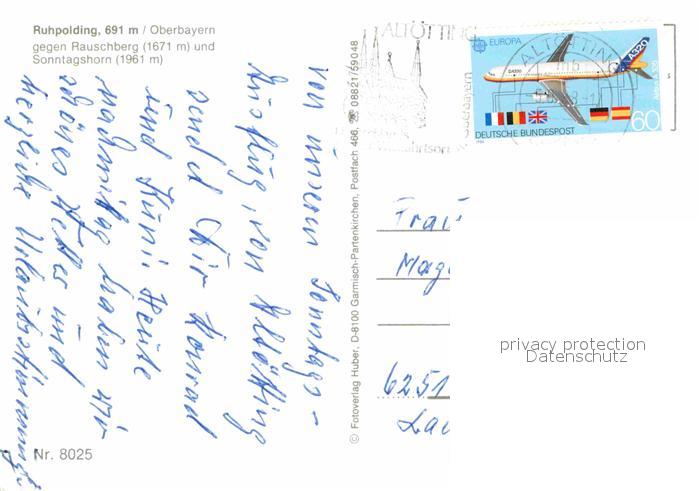 Ruhpolding, 691 m / Oberbayern
gegen Rauschberg (1671 m) und
Sonntagshorn (1961 m)
ALTÖTTING
EUROPA
A320
ALTÖTTING
DEUTSCHE BUNDESPOST
60
von unserem Sonntags-
Ausflug, von Altötting
sendet Dir Konrad
und
Heute
Nachmittag haben wir
schönes Wetter und
herzliche
© Fotoverlag Huber, D-8100 Garmisch-Partenkirchen, Postfach 466, ☏ 08821/59048
Frau
Mag
6251
Lau
privacy protection
Datenschutz
Nr. 8025